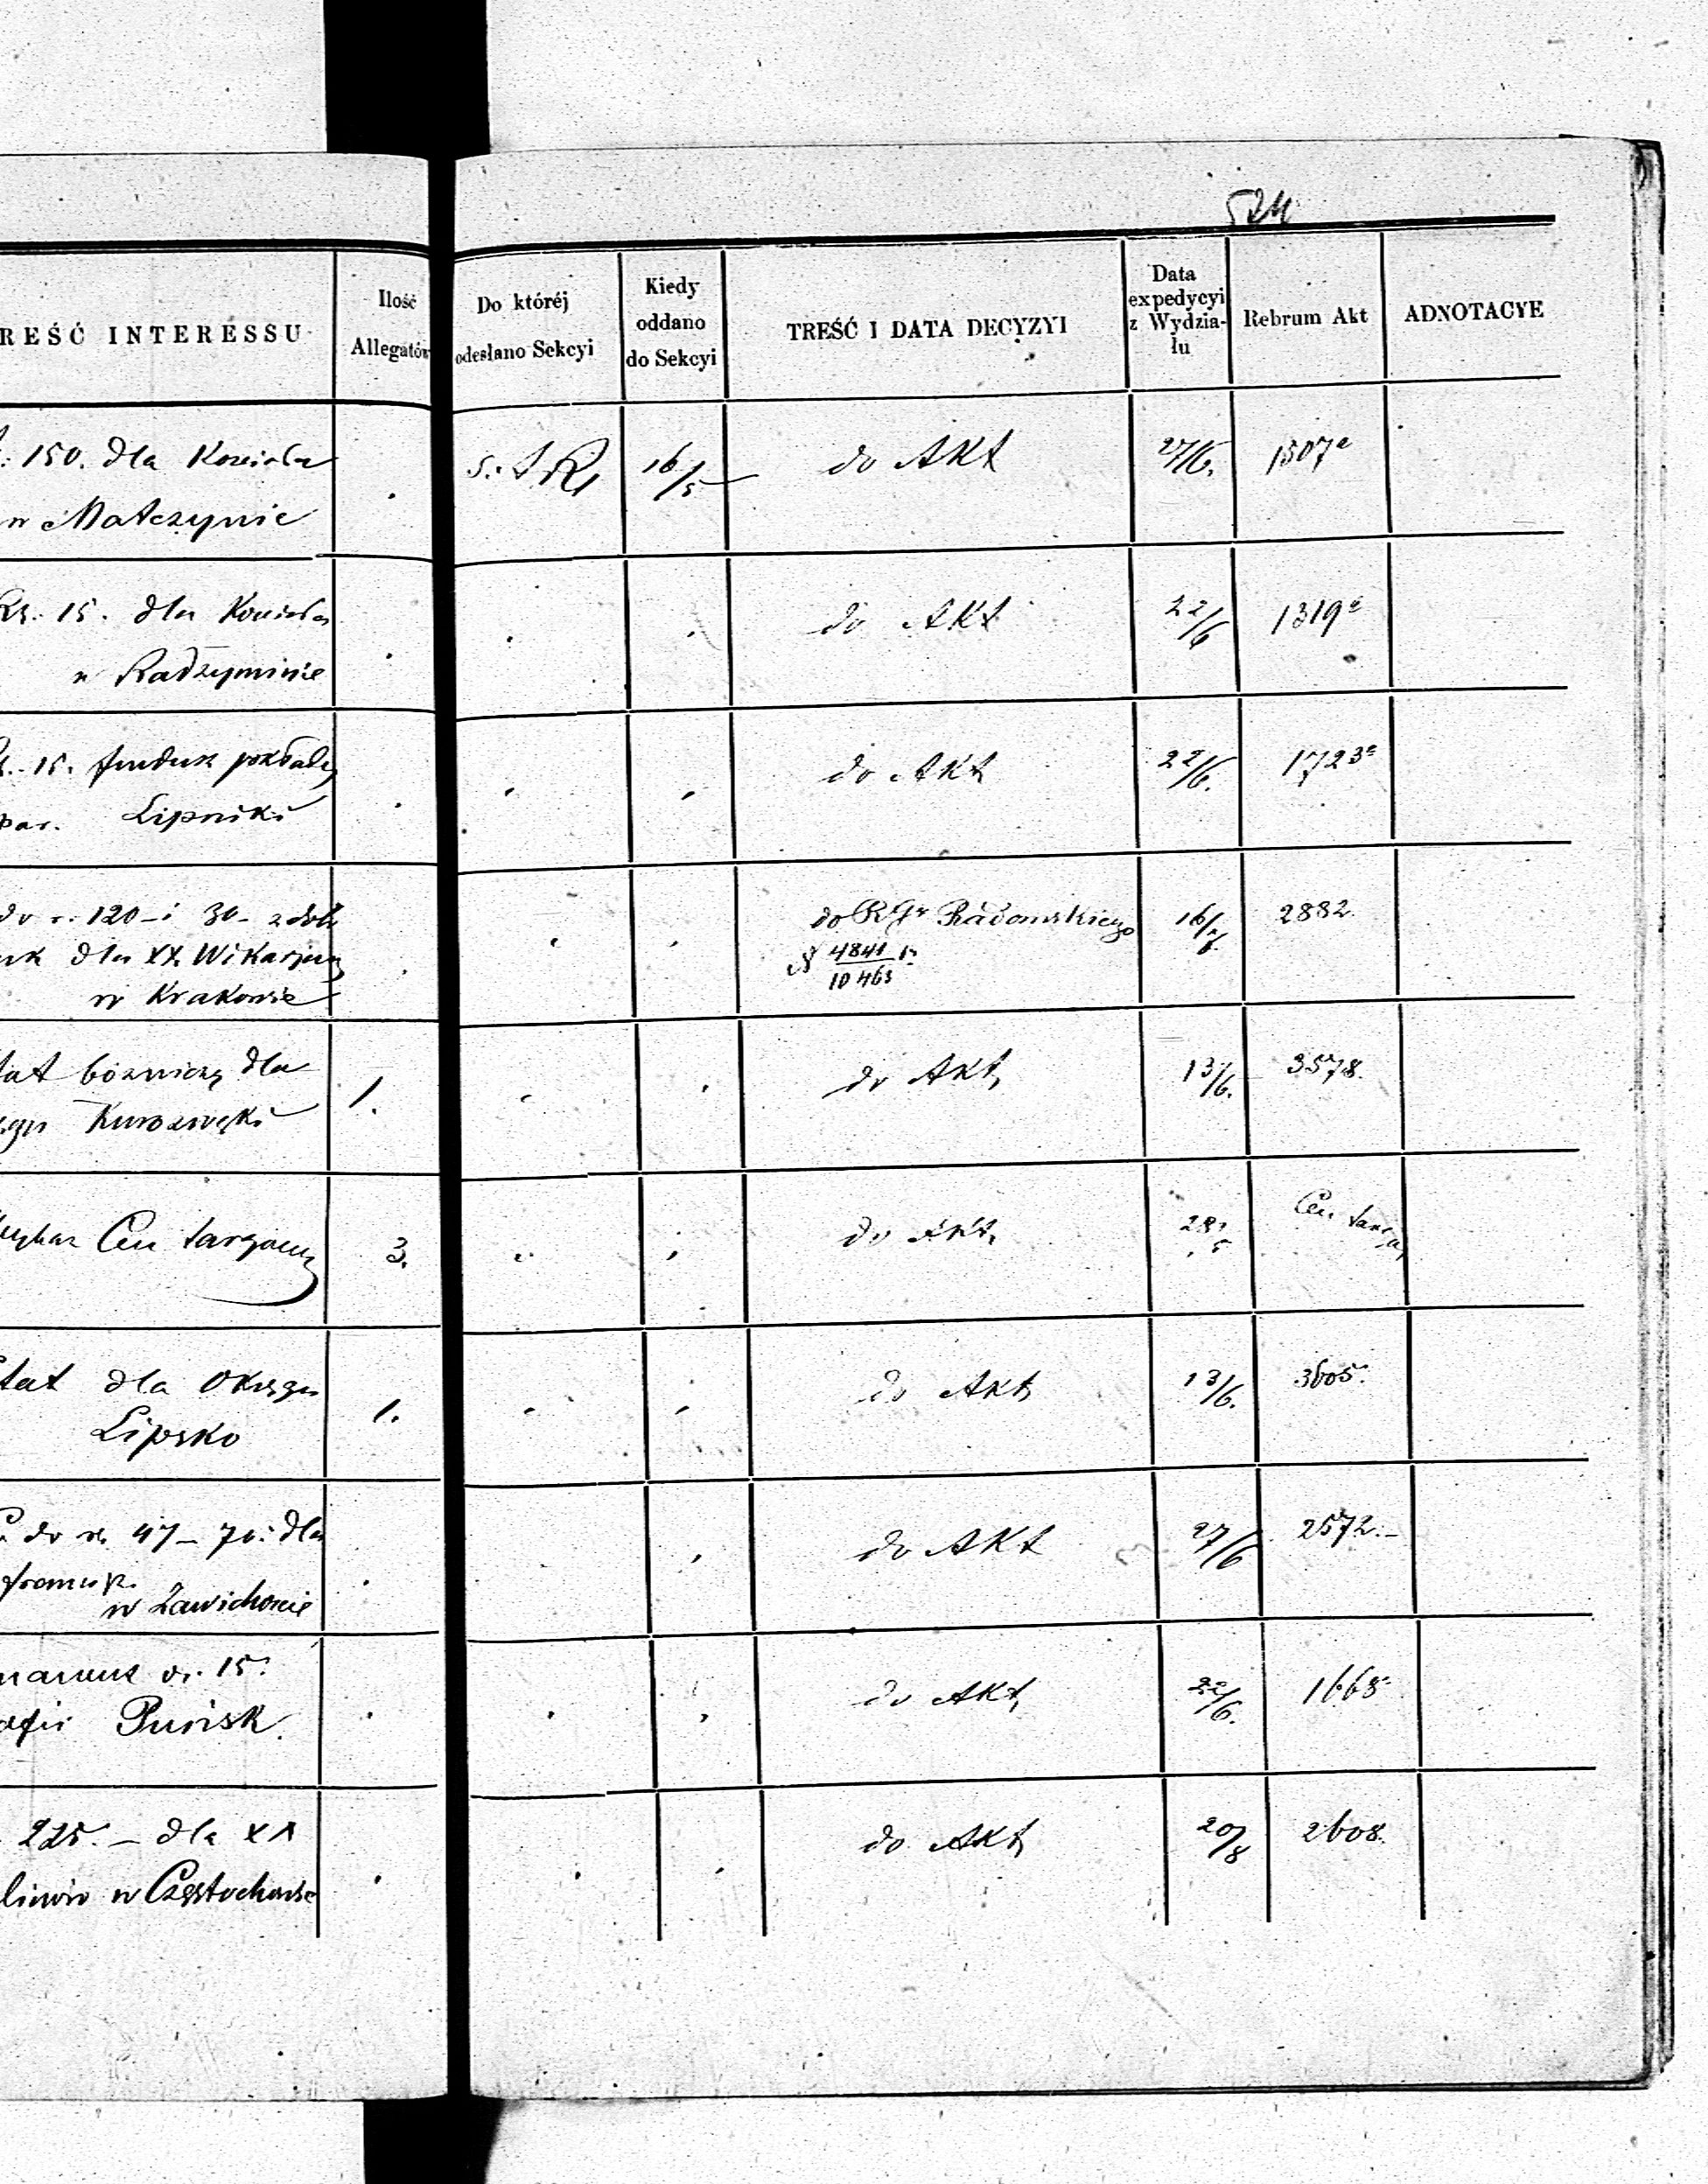 524
REŚĆ INTERESSU
Ilość
Allegatów
Do któréj
odesłano Sekcyi
Kiedy
oddano
do Sekcyi
TREŚĆ I DATA DECYZYI
Data
expedycyi
z Wydzia-
łu
Rebrum Akt
ADNOTACYE
150. dla Kościoła
w Matczynie
16/5
do Akt
27/6.
1507
15. dla Kościoła
w Radzyminie
do Akt
22/6
1319
15. fundusz pokładny
par. Lipniki
do Akt
22/6.
1723
120 - i 30 -
dla XX. Wikarjuszy
w Krakowie
do RGu Radomskiego
N 4841
10463
16/
2882.
bóżniczy dla
Kurozwęki
1.
do Akt
13/6.
3578.
Cen targowy
3.
do Akt
28
5
Cen targ
tat dla Okręgu
Lipsko
1.
do Akt
13/6.
3605.
47 - 70: dla
w Zawichoście
do Akt
27/6
2572. -
15.
Puńsk.
do Akt
22/6.
1668
225. - dla XX
w Częstochowie
do Akt
20/8
2608.